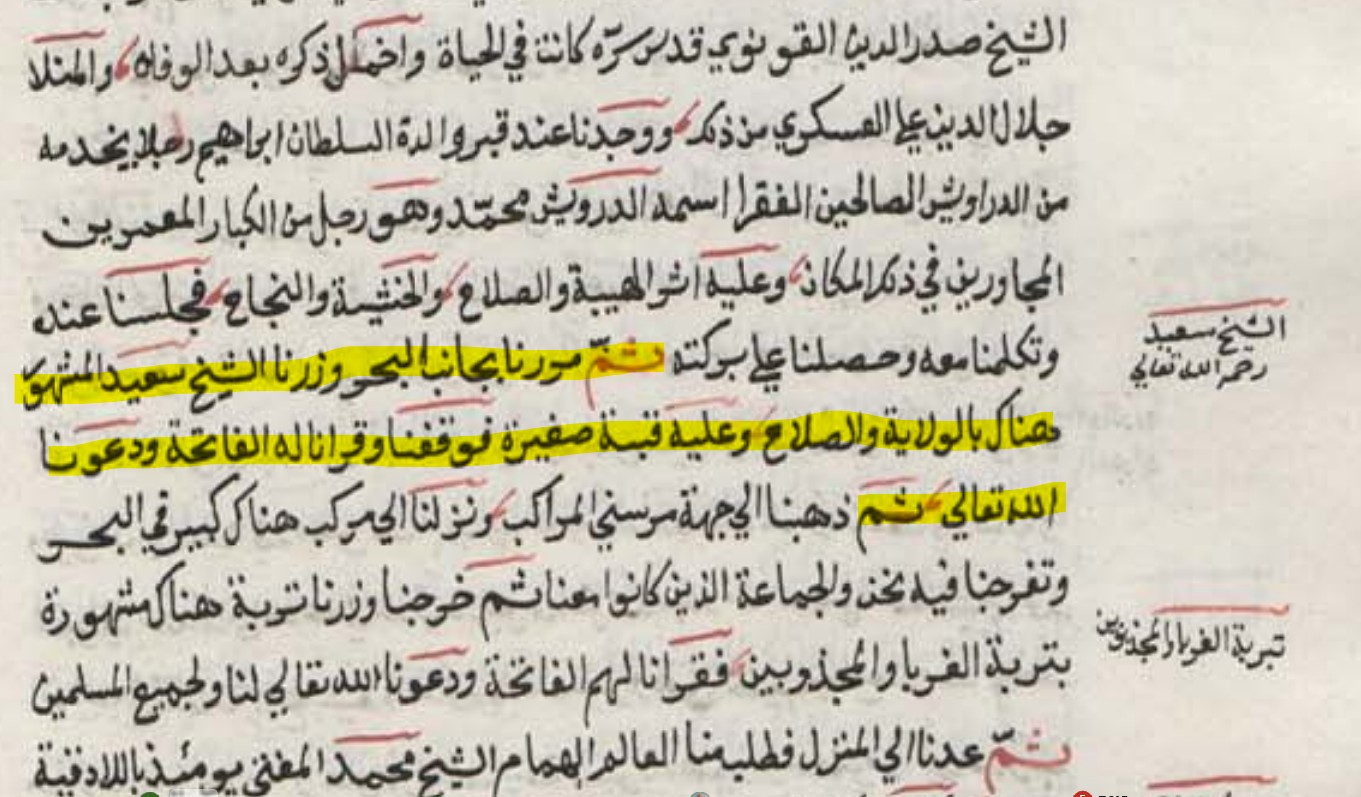 الشيخ صدر الدين القونوي قدس سرّه كانت في الحياة واخمل ذكره بعد الوفاه والمنلا
جلال الدين علي العسكري من ذلك ووجدنا عند قبر والدة السلطان ابراهيم رجلا يخدمه
من الدراويش الصالحين الفقرا اسمه الدرويش محمّد وهو رجل من الكبار المعمرين
المجاورين في ذلك المكان وعليه اثر الهيبة والصلاح والخشية والنجاح فجلسنا عنده
وتكلمنا معه وحصلنا علي بركته ثمّ مررنا بجانب البحر وزرنا الشيخ سعيد المشهور
هناك بالولاية والصلاح وعليه قبة صغيرة فوقفنا وقرانا له الفاتحة ودعونا
الله تعالي ثم ذهبنا الي جهة مرسي المراكب ونزلنا الي مركب هناك كبير في البحر
وتفرجنا فيه نحن والجماعة الذين كانوا معنا ثم خرجنا وزرنا تربة هناك مشهورة
بتربة الغربا والمجذوبين فقرانا لهم الفاتحة ودعونا الله تعالي لنا ولجميع المسلمين
ثمّ عدنا الي المنزل فطلب منا العالم الهمام الشيخ محمد المفتي يومئذ باللادقية
الشيخ سعيد
رحمه الله تعالي
تربة الغربا والمجذوبين